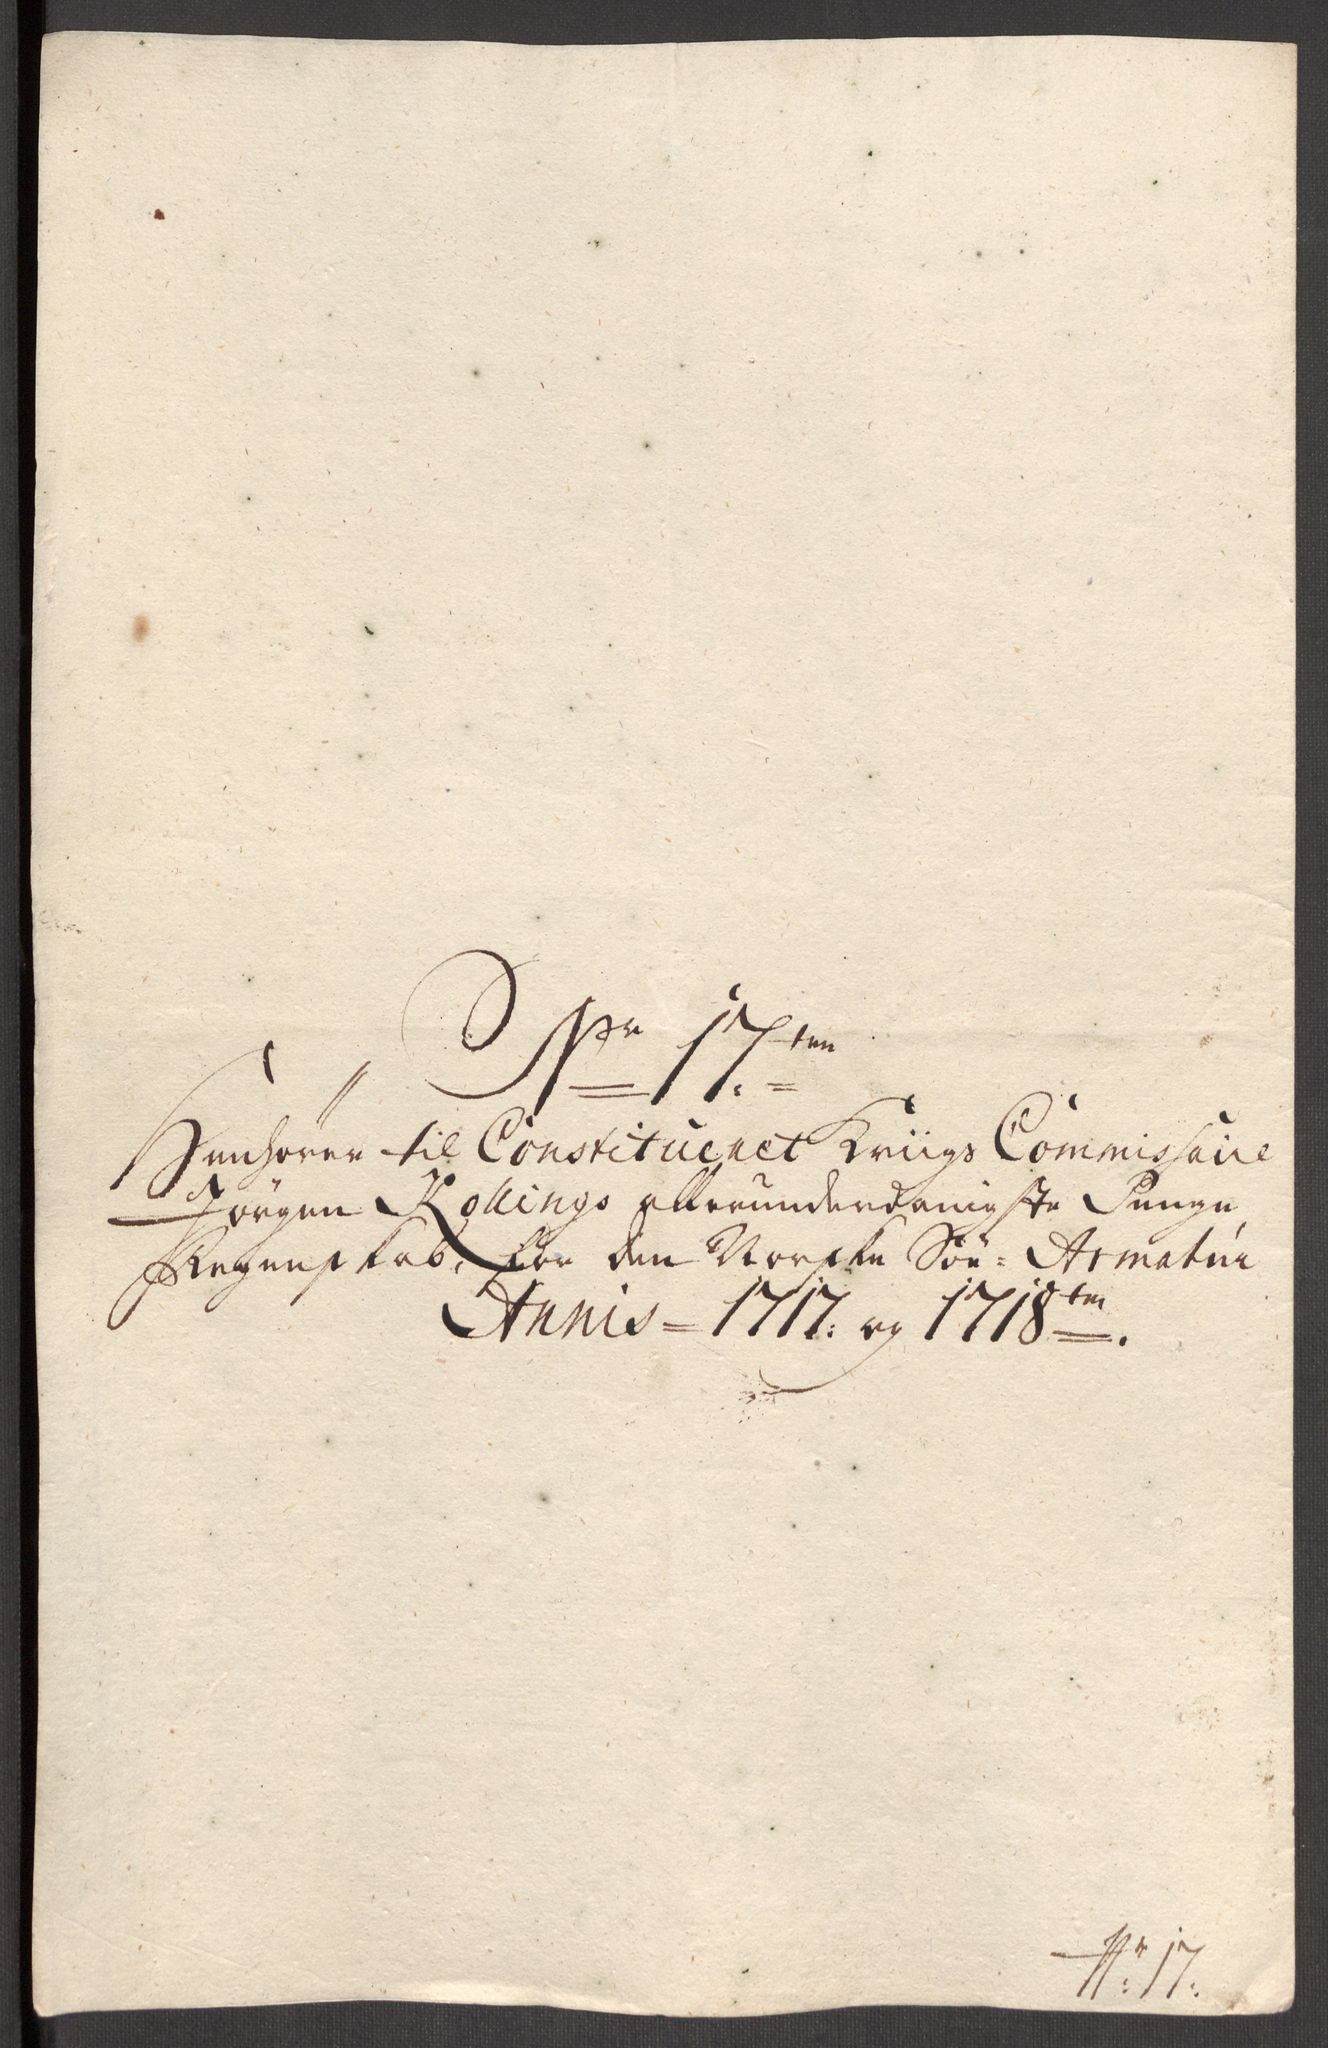 Nr 17.ten
Henhörer til Constitueret Kriigs Commissaire
Jörgen Kollings allerunderdanigste Penge
Regenskab, for den Norske Söe= Armatúr
Annis = 1717: og 1718ten.
Nr: 17: